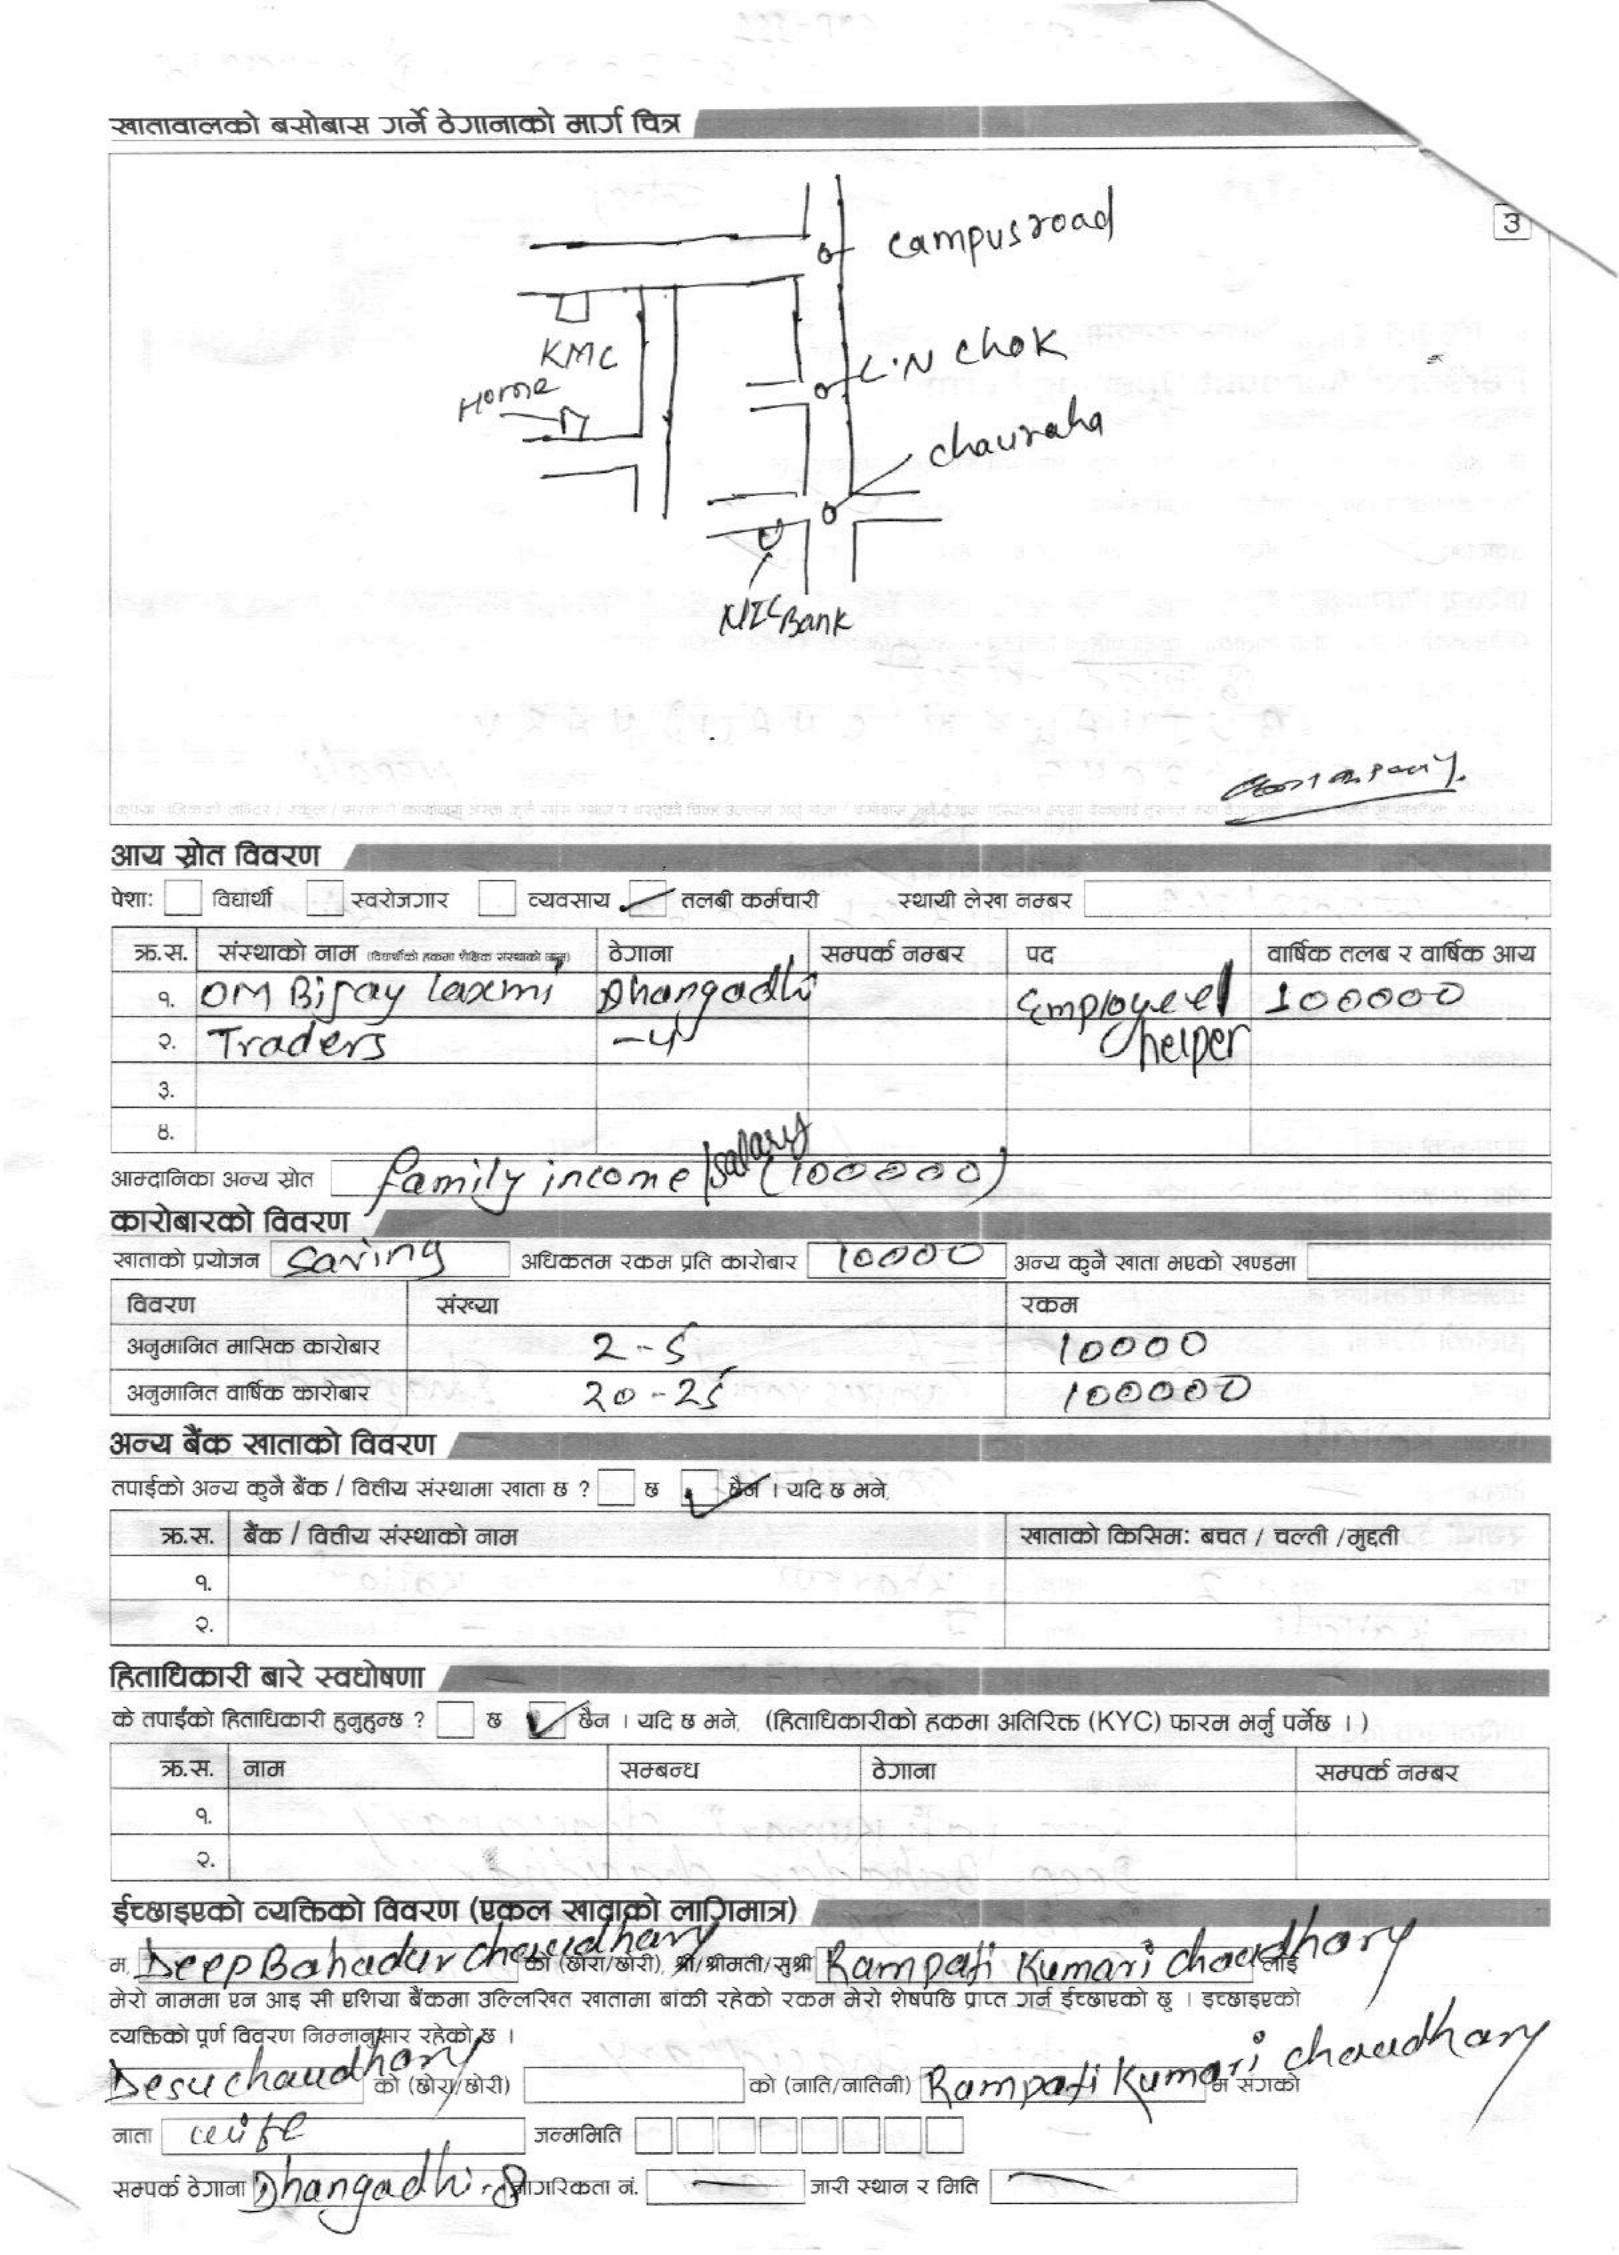 खातावालको बसोबास गर्ने ठेगानाको मार्ग चित्र
3
campusroad
KMC
L.N chok
Home
chauraha
NIC Bank
आय स्रोत विवरण
पेशा: विद्यार्थी स्वरोजगार व्यवसाय तलबी कर्मचारी स्थायी लेखा नम्बर
क्र.स. संस्थाको नाम (विद्यार्थीको हकमा शैक्षिक संस्थाको नाम) ठेगाना सम्पर्क नम्बर पद वार्षिक तलब र वार्षिक आय
१. OM Bijay Laxmi Dhangadhi Employee 100000
२. Traders -4 helper
३.
४.
आम्दानिका अन्य स्रोत family income/salary (100000)
कारोबारको विवरण
खाताको प्रयोजन saving अधिकतम रकम प्रति कारोबार 10000 अन्य कुनै खाता भएको खण्डमा
विवरण संख्या रकम
अनुमानित मासिक कारोबार 2-5 10000
अनुमानित वार्षिक कारोबार 20-25 100000
अन्य बैंक खाताको विवरण
तपाईको अन्य कुनै बैंक / वित्तीय संस्थामा खाता छ ? छ छैन । यदि छ भने,
क्र.स. बैंक / वित्तीय संस्थाको नाम खाताको किसिम: बचत / चल्ती /मुद्दती
१.
२.
हिताधिकारी बारे स्वघोषणा
के तपाईंको हिताधिकारी हुनुहुन्छ ? छ छैन । यदि छ भने, (हिताधिकारीको हकमा अतिरिक्त (KYC) फारम भर्नु पर्नेछ ।)
क्र.स. नाम सम्बन्ध ठेगाना सम्पर्क नम्बर
१.
२.
ईच्छाइएको व्यक्तिको विवरण (एकल खाताको लागिमात्र)
म, Deep Bahadur Chaudhary को (छोरा/छोरी), श्री/श्रीमती/सुश्री Rampati Kumari chaudhary लाई
मेरो नाममा एन आइ सी एशिया बैंकमा उल्लिखित खातामा बांकी रहेको रकम मेरो शेषपछि प्राप्त गर्न ईच्छाएको छु । इच्छाइएको
व्यक्तिको पूर्ण विवरण निम्नानुसार रहेको छ ।
Desu chaudhary को (छोरा/छोरी) को (नाति/नातिनी) Rampati Kumari chaudhary म संगको
नाता wife जन्ममिति
सम्पर्क ठेगाना Dhangadhi-8 नागरिकता नं. जारी स्थान र मिति